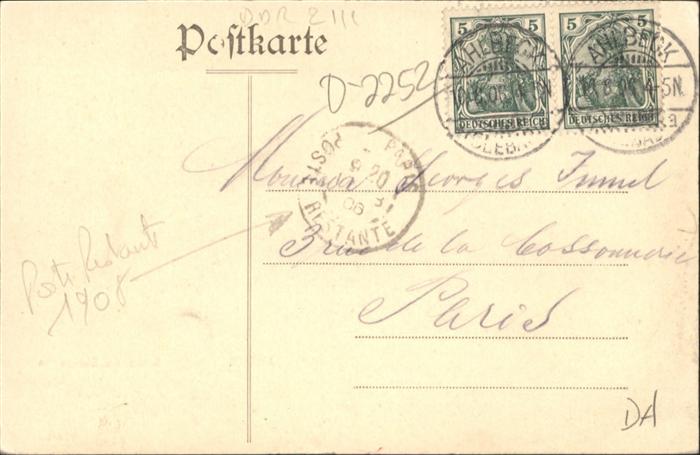 DDR 2111
Postkarte
D-2252
5 5
DEUTSCHES REICH
5 5
DEUTSCHES REICH
AHLBECK
AHLBECK
4-5N.
PARIS
POSTE
RESTANTE
20
06
Monsieur Georges
3 rue de la Cossonnerie
Paris
Poste Restante
1908
DA